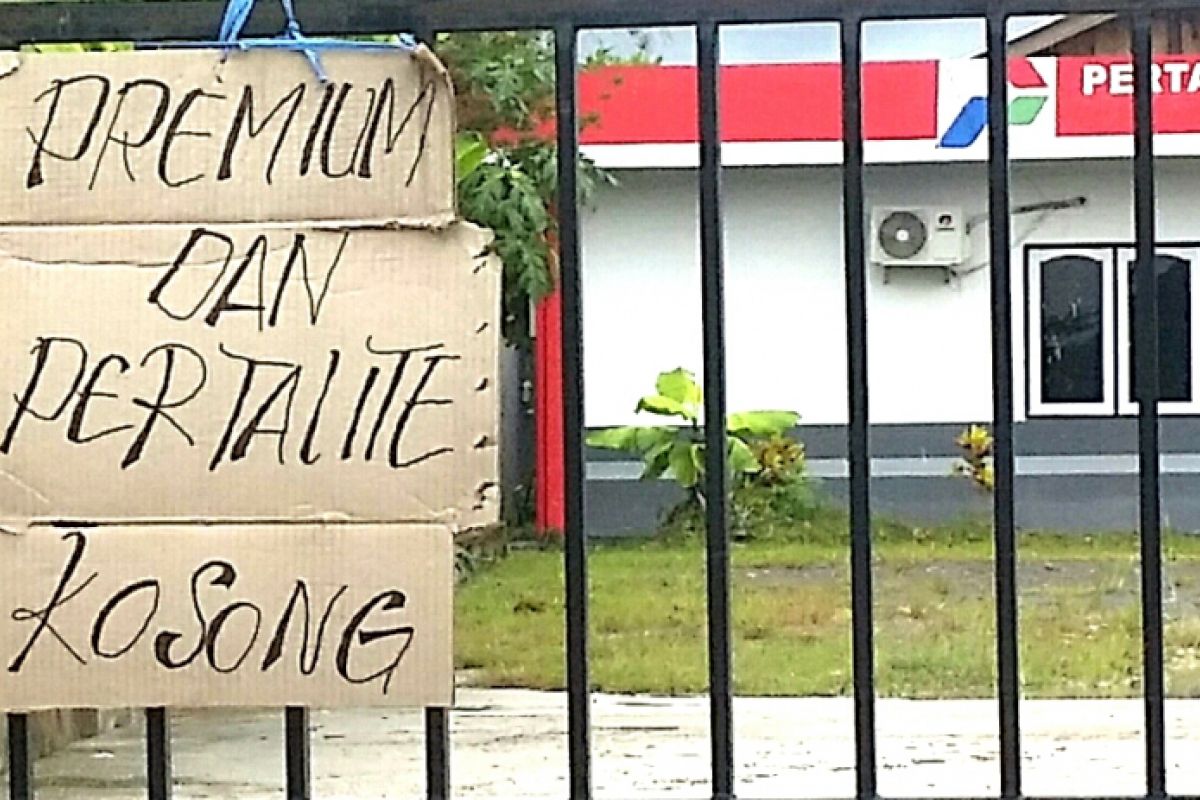 PREMIUM
DAN
PERTALITE
KOSONG
PERTA